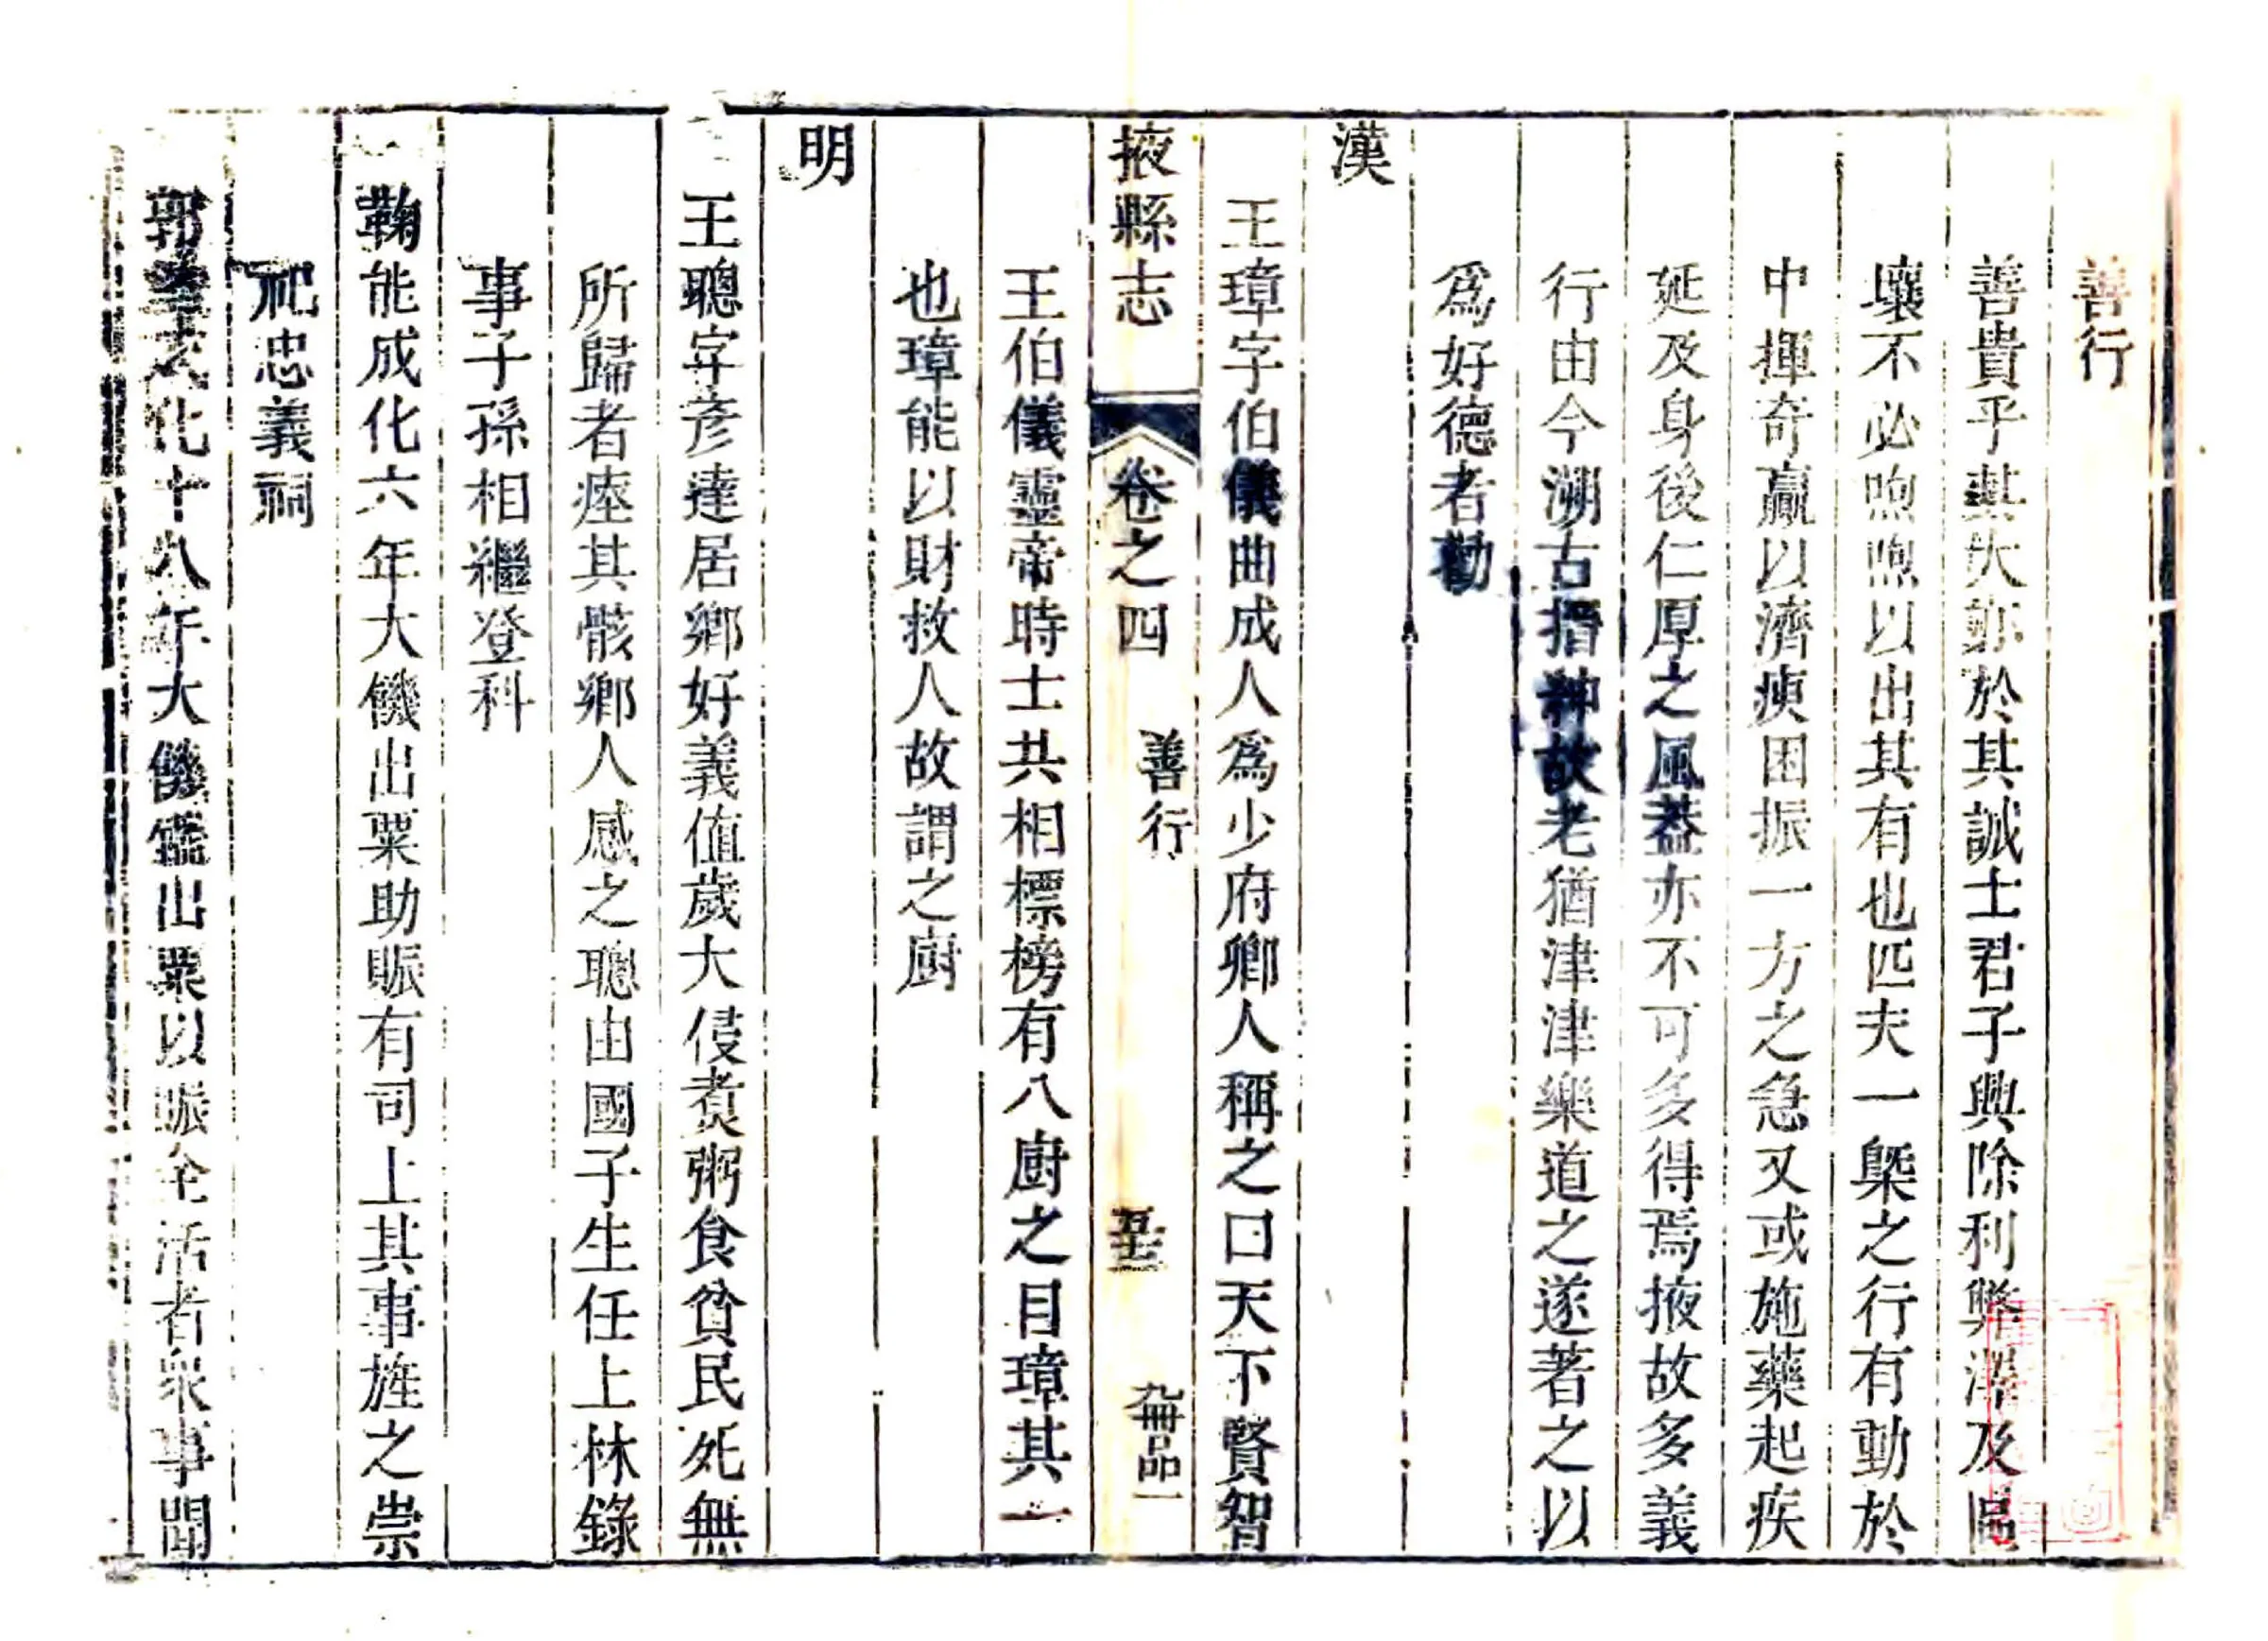 善行
善貴乎其大亦於其誠士君子興除利弊澤及區
壤不必煦煦以出其有也匹夫一槩之行有動於
中揮奇贏以濟瘐困振一方之急又或施藥起疾
延及身後仁厚之風蓋亦不可多得焉掖故多義
行由今溯古搢紳故老猶津津樂道之遂著之以
爲好德者勸
漢
王璋字伯儀曲成人爲少府卿人稱之曰天下賢智
掖縣志 卷之四 善行 九冊品一
王伯儀靈帝時士共相標榜有八廚之目璋其一
也璋能以財救人故謂之廚
明
王聰字彥達居鄉好義值歲大侵煮粥食貧民死無
所歸者瘞其骸鄉人感之聰由國子生任上林錄
事子孫相繼登科
鞠能成化六年大饑出粟助賑有司上其事旌之崇
祀忠義祠
郭 成化十八年大饑 出粟以賑全活者衆事聞